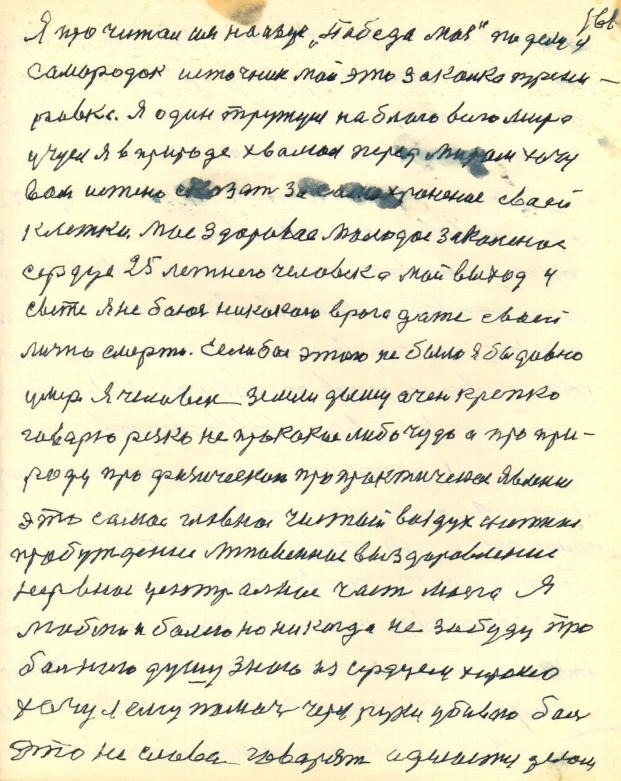 Я прочитал им на одце „Победа моя“ по делу и
самородок источник мой это закалка трени-
ровка. Я один тружусь на благо всего мира
учусь я в природе хвалюся перед миром хочу
вам истено сказат за само хронение своей
клетки. Мое здоровае молодое закаленое
сердце 25 летнего человека мой выход и
свете я не боюся никакого врога даже своей
лично смерти. Если бы этого не было я бы довно
умер я человек земли дышу очен крепко
говарю резко не про какое либо чудо а про при-
роду про физическое про практическое явление
это самое главное чистый воздух снежное
пробуждение мгновенное выздоровление
нервное централное част мозга Я
люблю и болею но никогда не забуду про
болного душу знаю их сердцем хорошо
хочу я ему помоч через руки убиваю боли
это не слова говарят а делается делом